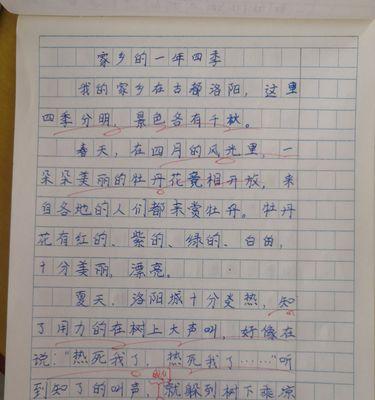 家乡的一年四季
我的家乡在古都洛阳，这里
四季分明，景色各有千秋。
春天，在四月的风光里，一
朵朵美丽的牡丹花竞相开放，来
自各地的人们都来赏牡丹。牡丹
花有红的、紫的、绿的、白的，
十分美丽，漂亮。
夏天，洛阳城十分炎热，知
了用力的在树上大声叫，好像在
说：“热死我了，热死我了……”听
到知了的叫声，我们就躲到树下乘凉